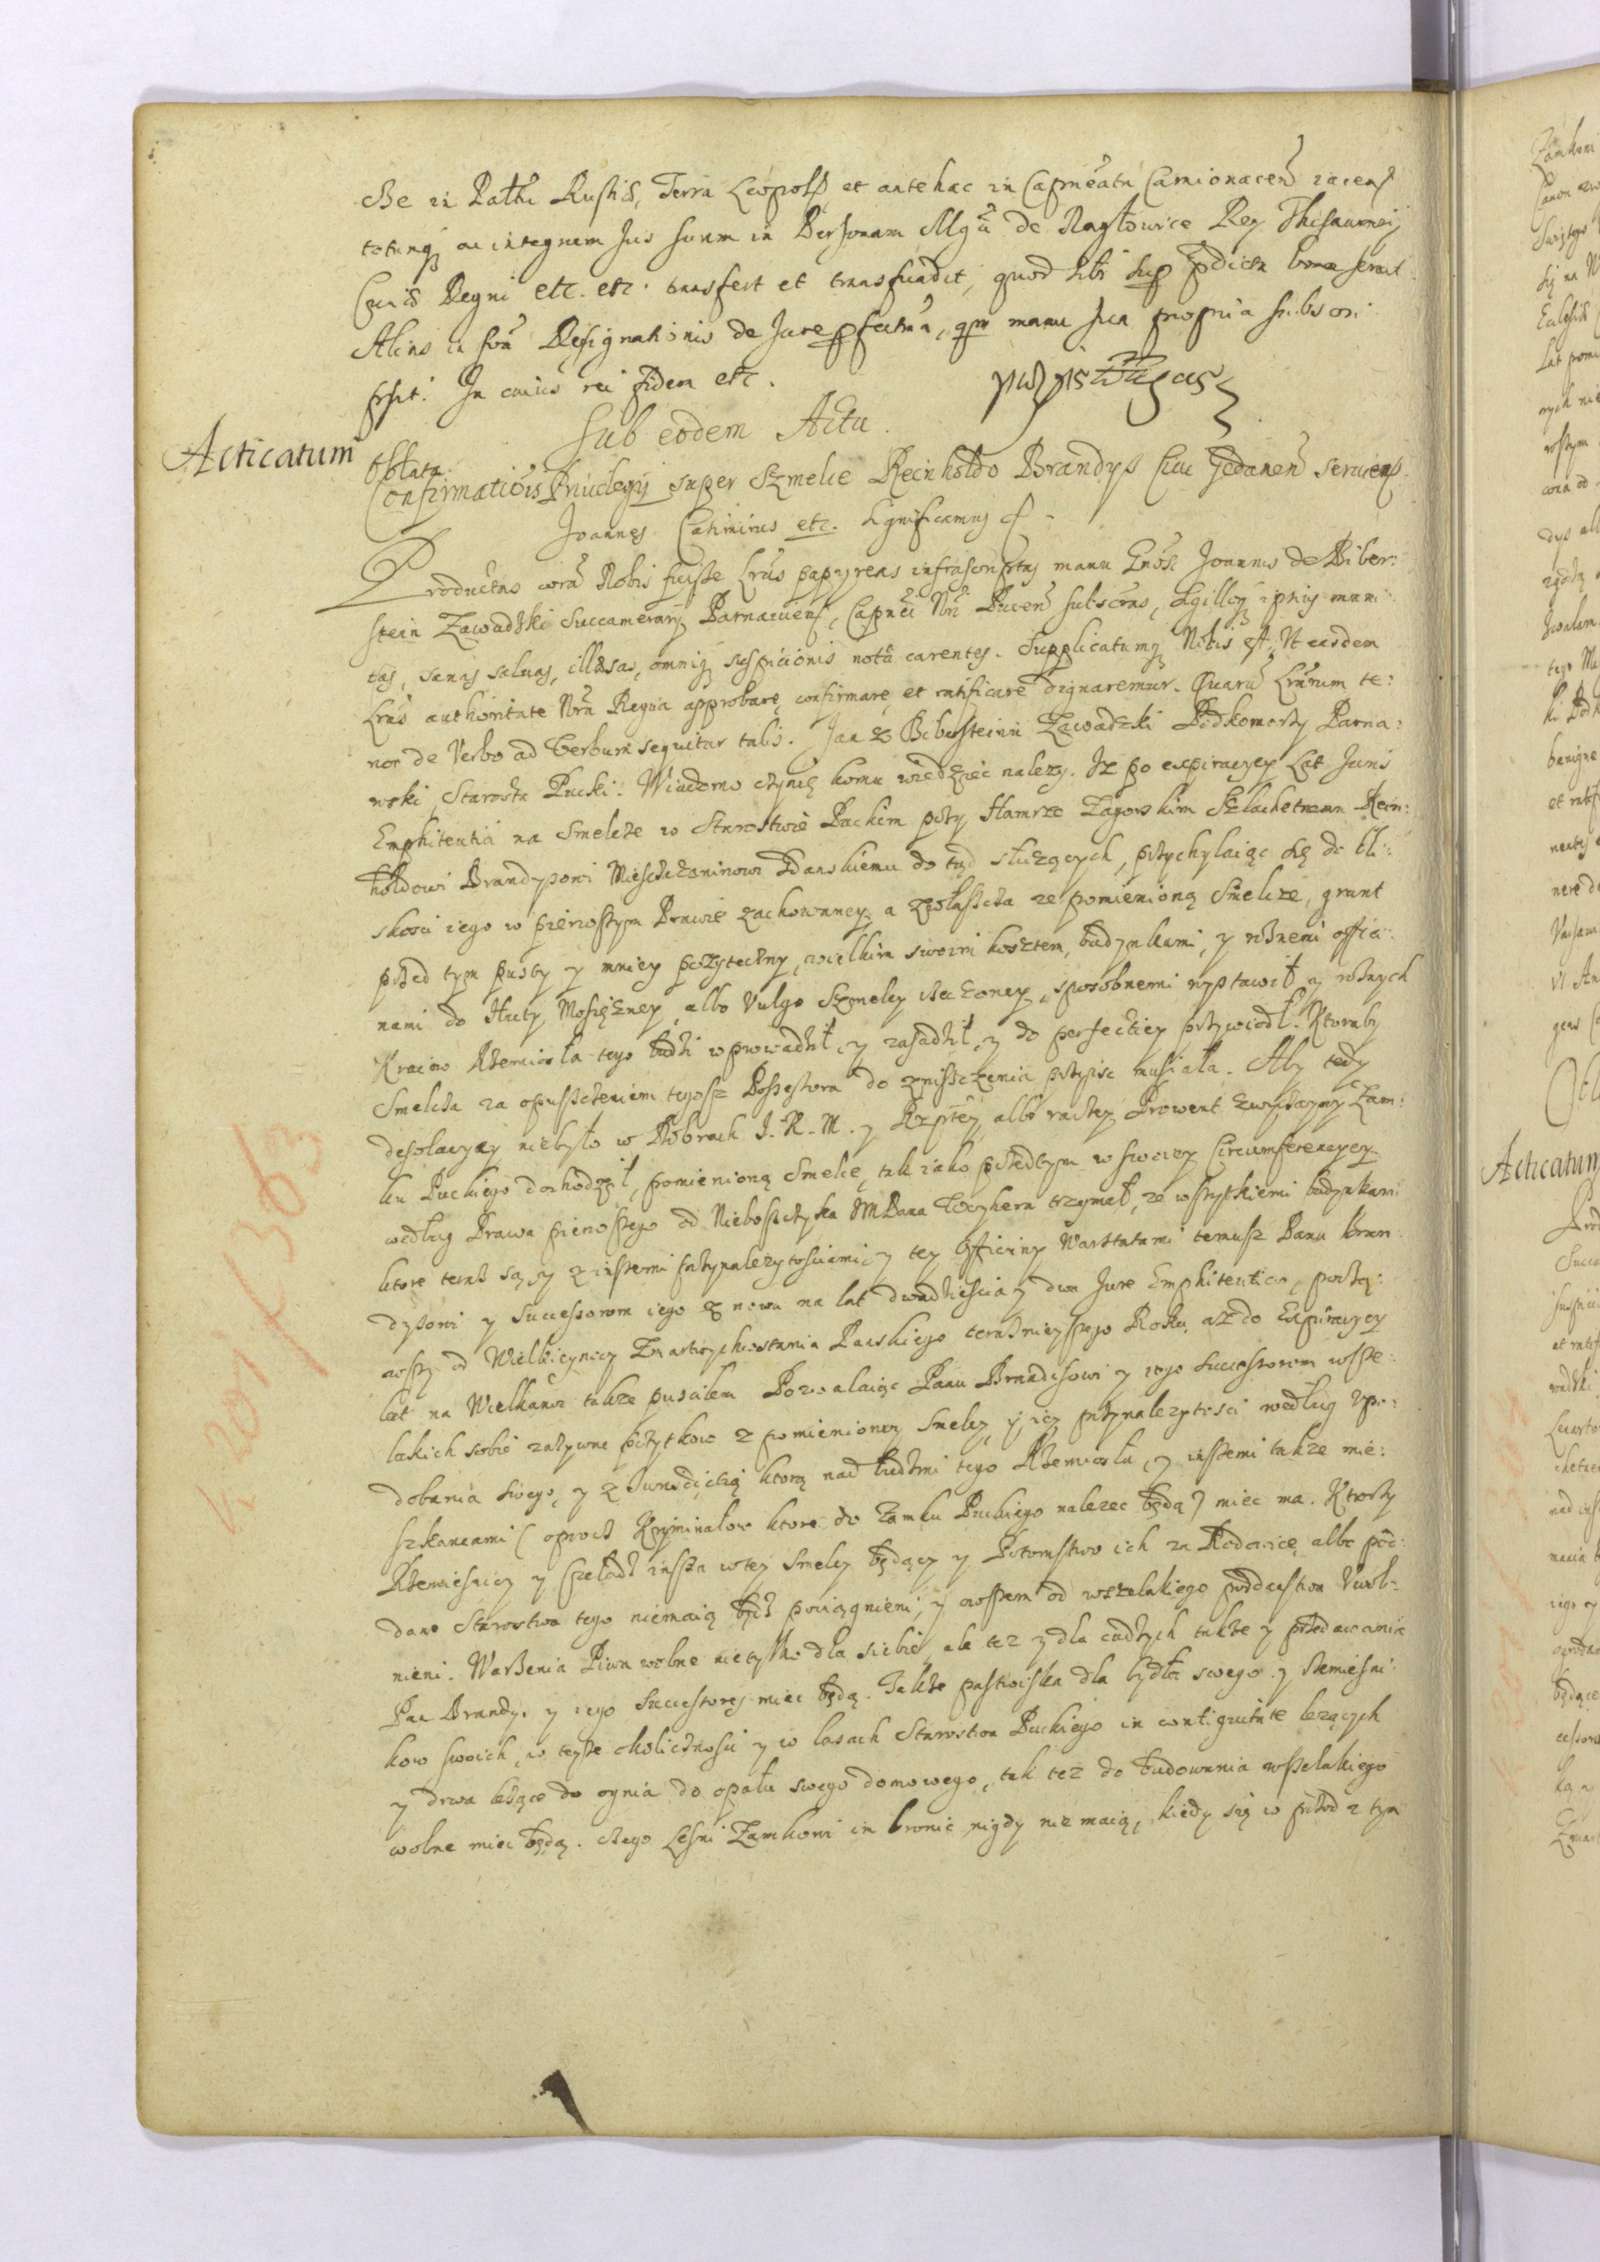 cke in Palńu Russiæ, Terra Leopolſ, et antehac in Capnëatu Camionacen̄ iacenſ
totumq; ac integrum Jus suum in Personam Mgci de Nagłowice Rey Thesaurarij
Curiæ Regni etc. etc. transfert et transfundit, quod sibi sup p̄dicta bona seruit
Alias in forā Resignationis de Jure perfectiua, qm manu sua propria subscri:
psit. In cuius rei fidem etc.
Sub eodem Actu
Acticatum
Oblata
Confirmationis Priuilegij super Szmelce Reinholdo Brandys Ciui Gedanen̄ seruiens
Joannes Casimirus etc. Significamus
Productas coram Nobis fuisse Lras papyreas infrascriptas manu Gnosi Joannis de Biber:
stein Zawadzki Succamerarij Parnauienſ, Capnei Nri Pucen̄ subscras, sigilloq; ipsius muni:
tas, sanas saluas, illæsas, omniq; suspicionis notâ carentes. Supplicatumq; Nobis est, Ut easdem
Lras authoritate Nrâ Regia approbare, confirmare, et ratificare dignaremur. Quarū Lrarum te:
nor de Verbo ad Verbum sequitur talis. Jan z Bibersteinu Zawadzki Podkomorzy Parna:
wski, Starosta Pucki. Wiadomo czynię komu wiedzieć nalezy. Iz po expiracyey Lat Juris
Emphiteutici na Smelcze w Starostwie Puckim przy Hamrze Zagorskim Szlachetnemu Rein:
holdowi Brandysowi Mieszczaninowi Gdanskiemu do tąd służących, przychylaiąc się do bli:
skości iego w pierwszym Prawie zachowaney, a zwłaszcza ze pomienioną Smelcze, grunt
przed tym pusty y mniey pozyteczny, wielkim swoim kosztem, budynkami, y roznemi offici:
nami do Huty Mosięzney, albo Vulgo Szmelcy rzeczoney, sposobnemi wystawił y roznych
Kraiow Rzemiosła tego ludzi wprowadził, y zasadził, y do perfectiey przywiodł. Ktoraby
Smelcza za opuszczeniem tegosz Possessora do zniszczenia przyisc musiała. Aby tedy
desolacyey niebyło w Dobrach J. K. M. y Rzptey, albo raczey Prowent zwyczayny Zam:
ku Puckiego dochodził, pomienioną Smelcę, tak iako przedtym w swoiey Circumferencyey
według Prawa pierwszego od Nieboszczyka JMPana Weyhera trzymał, ze wszytkiemi budynkami
ktore teraz są, y z inszemi przynalezytościami, y tey Officiny Warsztatami temusz Panu Bran
dysowi y Successorom iego z nowu na lat dwadzieścia y dwa Jure Emphiteutico, począ:
wszy od Wielkieynocy Zmartwychwstania Panskiego teraznieyszego Roku, az do Expiracyey
lat na Wielkanoc takze puscilem Pozwalaiąc Panu Brandisowi y iego Successorom wsze:
lakich sobie zazywac pożytkow z pomienioney Smelcy, y iey przynalezytosci według upo:
dobania swego, y z Jurisdictią ktorą nad ludzmi tego Rzemiosła, y inszemi takze mie:
szkancami (oprocz Kryminałow ktore do Zamku Puckiego nalezec będą) miec ma. Ktorzy
Rzemiesnicy y Czeladz insza w tey Smelcy będący y Potomstwo ich za Rodowice albo pod:
dane Starostwa tego niemaią bydz pociągnieni, y owszem od wszelakiego poddanstwa Uwol:
nieni. Warzenia Piwa wolne nietylko dla siebie, ale tez y dla cudzych takze y przedawania
Pan Brandys y iego Successores miec będą. Takze pastwiska dla bydła swego y Rzemiesni:
kow swoich, w teyze okolicznosci y w lasach Starostwa Puckiego in contiguitate lezących
y drwa lezące do ognia do opału swego domowego, tak tez do budowania wszelakiego
wolne miec będą. Czego Lesni Zamkowi im bronic nigdy nie maią, kiedy się w przod z tym
K 201/363
Acticatum